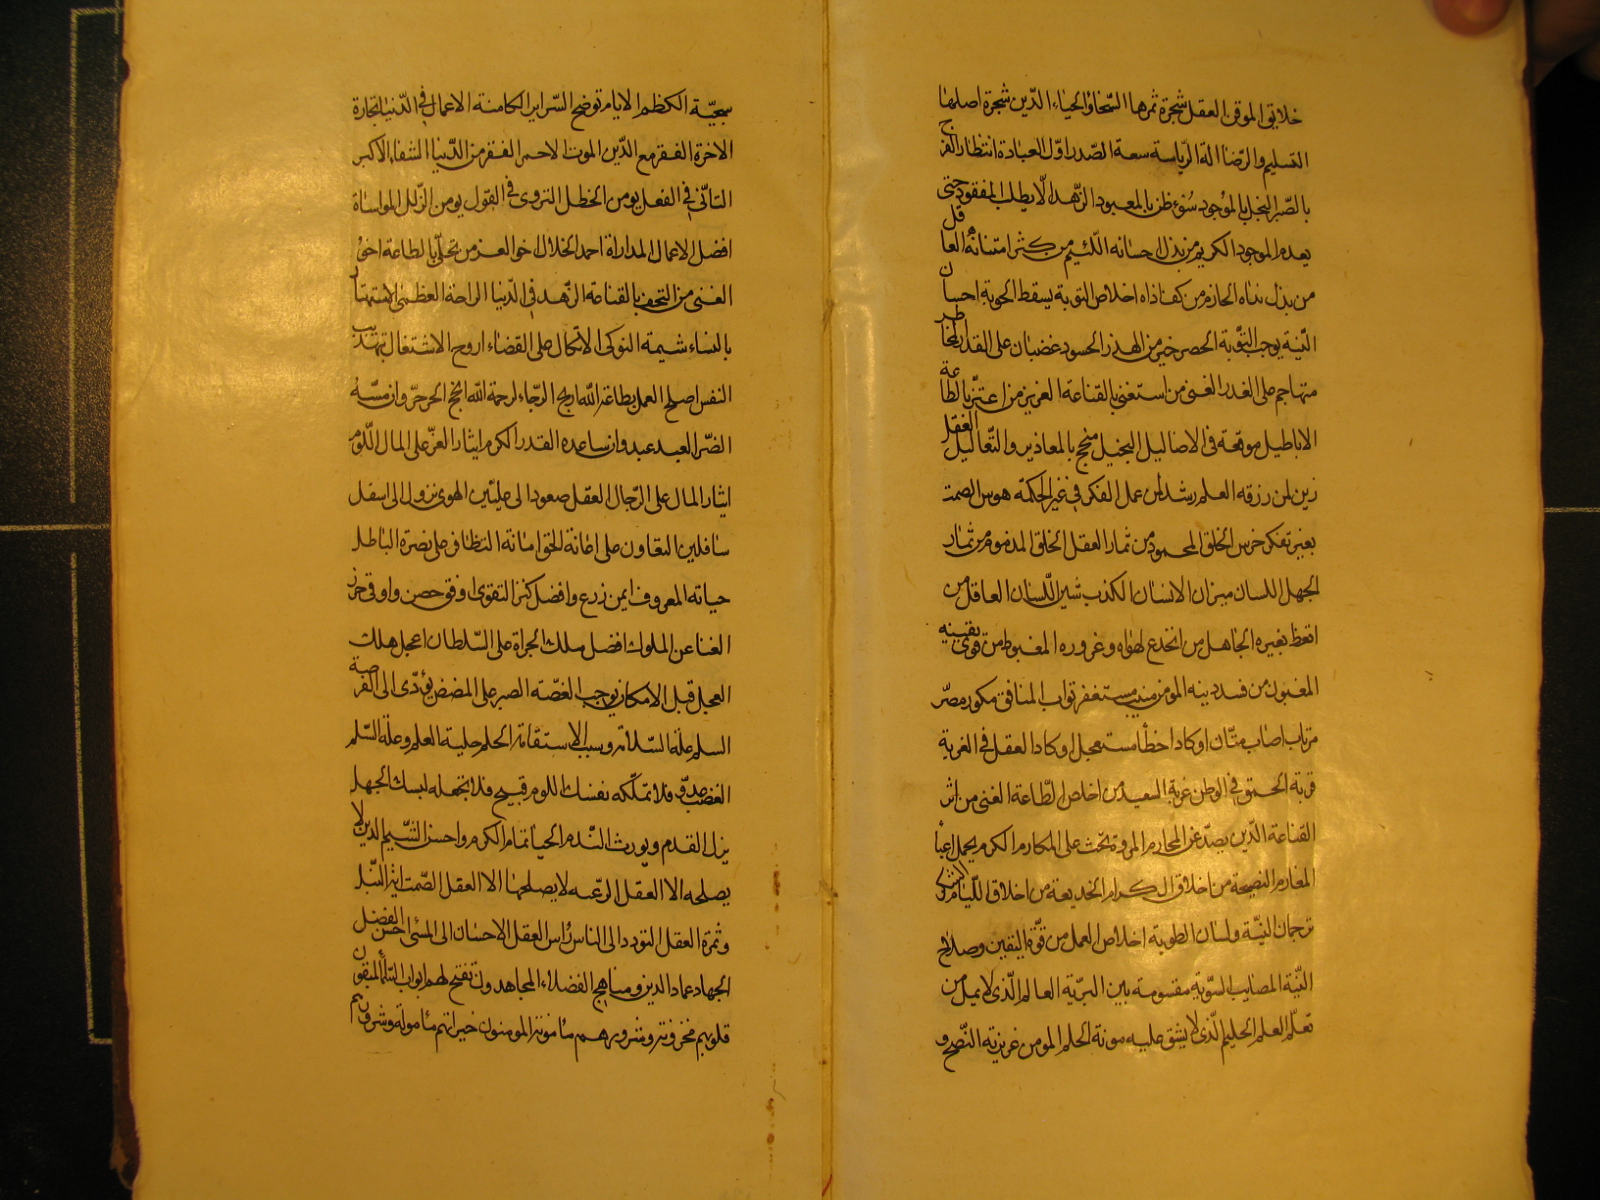 خلايق الموقن العقل شجرة ثمرها السخاء والحياء الدّين شجرة اصلها
التسليم والرّضا الة الرّياسة سعة الصّدر اوّل العبادة انتظار الفرج
بالصّبر البخل بالموجود سُوء ظن بالمعبود الزّهد الّا يطلب المفقود حتى
يعدم الموجود الكريم من بذل احسانه اللّئيم من كثر امتنانه العاقل
من بذل نداه الحازم من كف اذاه اخلاص التوبة يسقط الحوبة احسان
النّية يوجب التّوبة الحصر خير من الهذر الحسود غضبان على القدر المخاطر
متهاجم على الغدر الغنى من استغنى بالقناعة العزيز من اعتزّ بالطّاعة
الاباطيل موقعة فى الاضاليل البخيل متحجج بالمعاذير والتّعاليل العقل
زين لمن رزقه العلم رشد لمن عمل الفكر فى غير الحكمة هوس الصمت
بغير تفكر خرس الخلق المحمود من ثمار العقل الخلق المذموم من ثمار
الجهل اللسان ميزان الانسان الكذب شين اللّسان العاقل من
اتعظ بغيره الجاهل من انخدع لهواه وغروره المغبوط من قوى يقينه
المغبون من فسد دينه المومن منيب مستغفر تواب المنافق مكور مصرّ
مرتاب اصاب متأن او كاد اخطأ مستعجل او كاد العقل فى الغربة
قربة الحمق فى الوطن غربة السعيد من اخلص الطّاعة الغنى من اثر
القناعة الدّين يصدّ عن المحارم المروة تحث على المكارم الكرم يحمل اعباء
المغارم النصيحة من اخلاق الكرام الخديعة من اخلاق اللّيام الشكر
ترجمان النيّة ولسان الطوية اخلاص العمل من قوّة اليقين وصلاح
النّية المصايب السّوية مقسومة بين البريّة العالم الّذى لا يمل من
تعلّم العلم الحليم الّذى لا يشق عليه مونة الحلم المومن غريزته النّصح و
سجيّته الكظم الايام توضح السّراير الكامنة الاعمال فى الدّنيا تجارة
الاخرة الفقر مع الدّين الموت الاحمر الفقر من الدّنيا الشفاء الاكبر
التأنّى فى الفعل يومن الخطل التروى فى القول يومن الزّلل المواساة
افضل الاعمال المداراة احمد الخلال اخو العز من تحلّى بالطاعة اخو
الغنى من التحف بالقناعة الزّهد فى الدّنيا الراحة العظمى الاستهتار
بالنساء شيمة النوكى الاتّكال على القضاء اروح الاشتغال بتهذيب
النفس اصلح العمل بطاعة اللّه اربح الرّجاء لرحمة اللّه انجح الحر حرّ وان مسّه
الضّر العبد عبد وان ساعده القدر الكرم ايثار العزّ على المال اللّوم
ايثار المال على الرّجال العقل صعود الى عليّين الهوى نزول الى اسفل
سافلين التعاون على اقامة الحق امانة التظافر على نصرة الباطل
خيانة المعروف ايمن زرع وافضل كنز التقوى اوفق حصن واوقى حرز
الغنا عن الملوك افضل ملك الجراة على السّلطان اعجل هلك
العجل قبل الامكان يوجب الغصّه الصبر على المضض يؤدّى الى الفرصة
السلم علة السّلامة وسبب الاستقامة الحلم حلية العلم وعلة السّلم
الغضب عدوّ فلا تملّكه نفسك اللوم قبيح فلا تجعله لبسك الجهل
يزل القدم ويورث النّدم الحياء تمام الكرم واحسن الشّيم الدين لا
يصلحه الا العقل الرّعيه لا يصلحها الا العقل الصّمت اية النّبل
وثمرة العقل التودد الى الناس رأس العقل الاحسان الى المسئ احسن الفضل
الجهاد عماد الدين ومنهاج الفضلاء المجاهدون تفتح لهم ابواب السّماء المتقون
قلوبهم محزونة وشرورهم مأمونة المومنون خيراتهم مأمولة وشرورهم